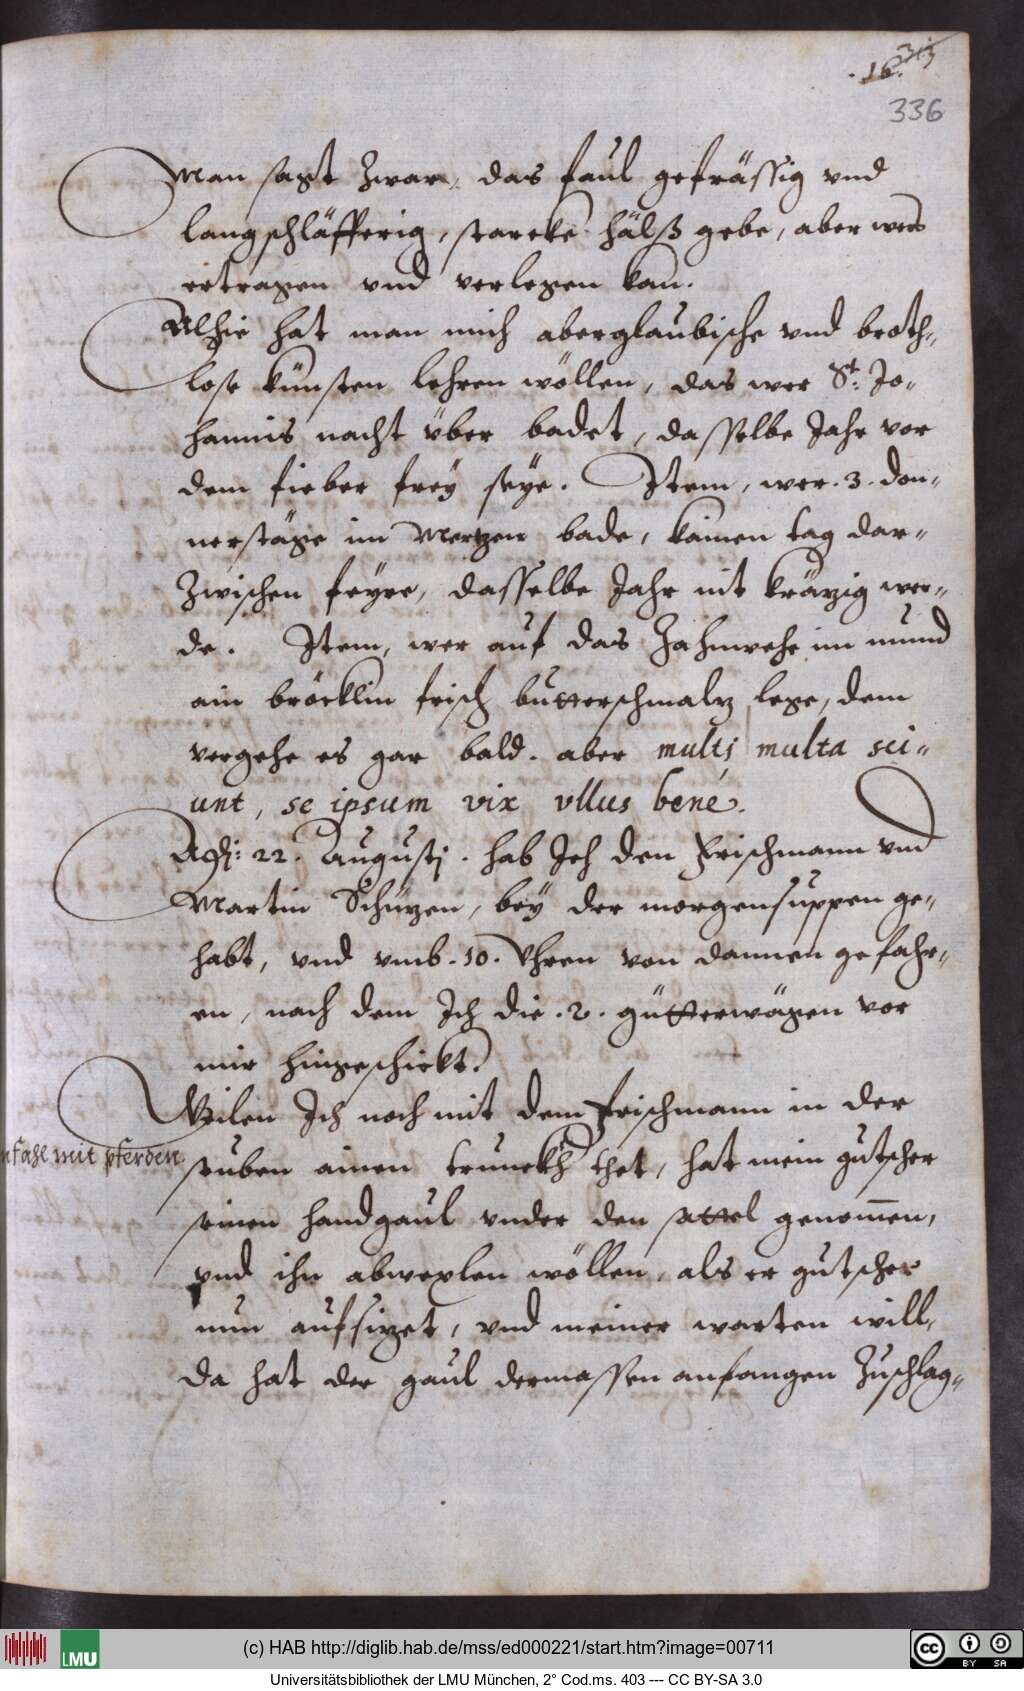 16. 313
336
Man sagt Zwar, das faul gefrässig vnd
langschläfferig, starcke hälß gebe, aber wers
ertragen vnd verlegen kan.
Alhie hat man mich aberglaubische vnd broth-
lose künsten lehren wöllen, das wer St: Jo-
hannis nacht über badet, dasselbe Jahr vor
dem fieber frey seye. Item, wer .3. don-
nerstäge im Mertzen bade, kainen tag dar-
Zwischen feyre, dasselbe Jahr nit kräzig wer-
de. Item, wer auf das Zahnwehe im mund
ain bröcklin frisch butterschmalz lege, dem
vergehe es gar bald. aber multj multa sci-
unt, se ipsum vix vllus bené.
Adj: 22. Augustj. hab Ich den Frischmann vnd
Martin Schüzen, bey der morgensuppen ge-
habt, vnd vmb .10. Vhren von dannen gefahr-
en, nach dem Ich die .2. gütterwägen vor
mir hingeschickt.
Weilen Ich noch mit dem Frischmann in der
nfahl mit pferden.
stuben ainen trunckh thet, hat mein gutscher
seinen handgaul vnder den sattel genom̅en,
vnd ihn abwexlen wöllen, als er gutscher
nun aufsizet, vnd meiner warten will,
da hat der gaul dermassen anfangen Zuschlag-
(c) HAB http://diglib.hab.de/mss/ed000221/start.htm?image=00711
LMU
cc BY SA
Universitätsbibliothek der LMU München, 2° Cod.ms. 403 --- CC BY-SA 3.0